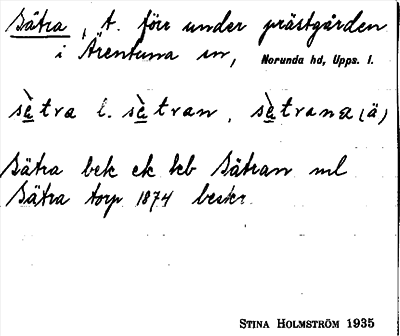 Sätra, t. förr under prästgården
i Ärentuna sn, Norunda hd, Upps. l.
sὲtra l. sὲtran, sὲtrana (ä)
Sätra bek ek kb Sätran ml
Sätra torp 1874 beskr
STINA HOLMSTRÖM 1935